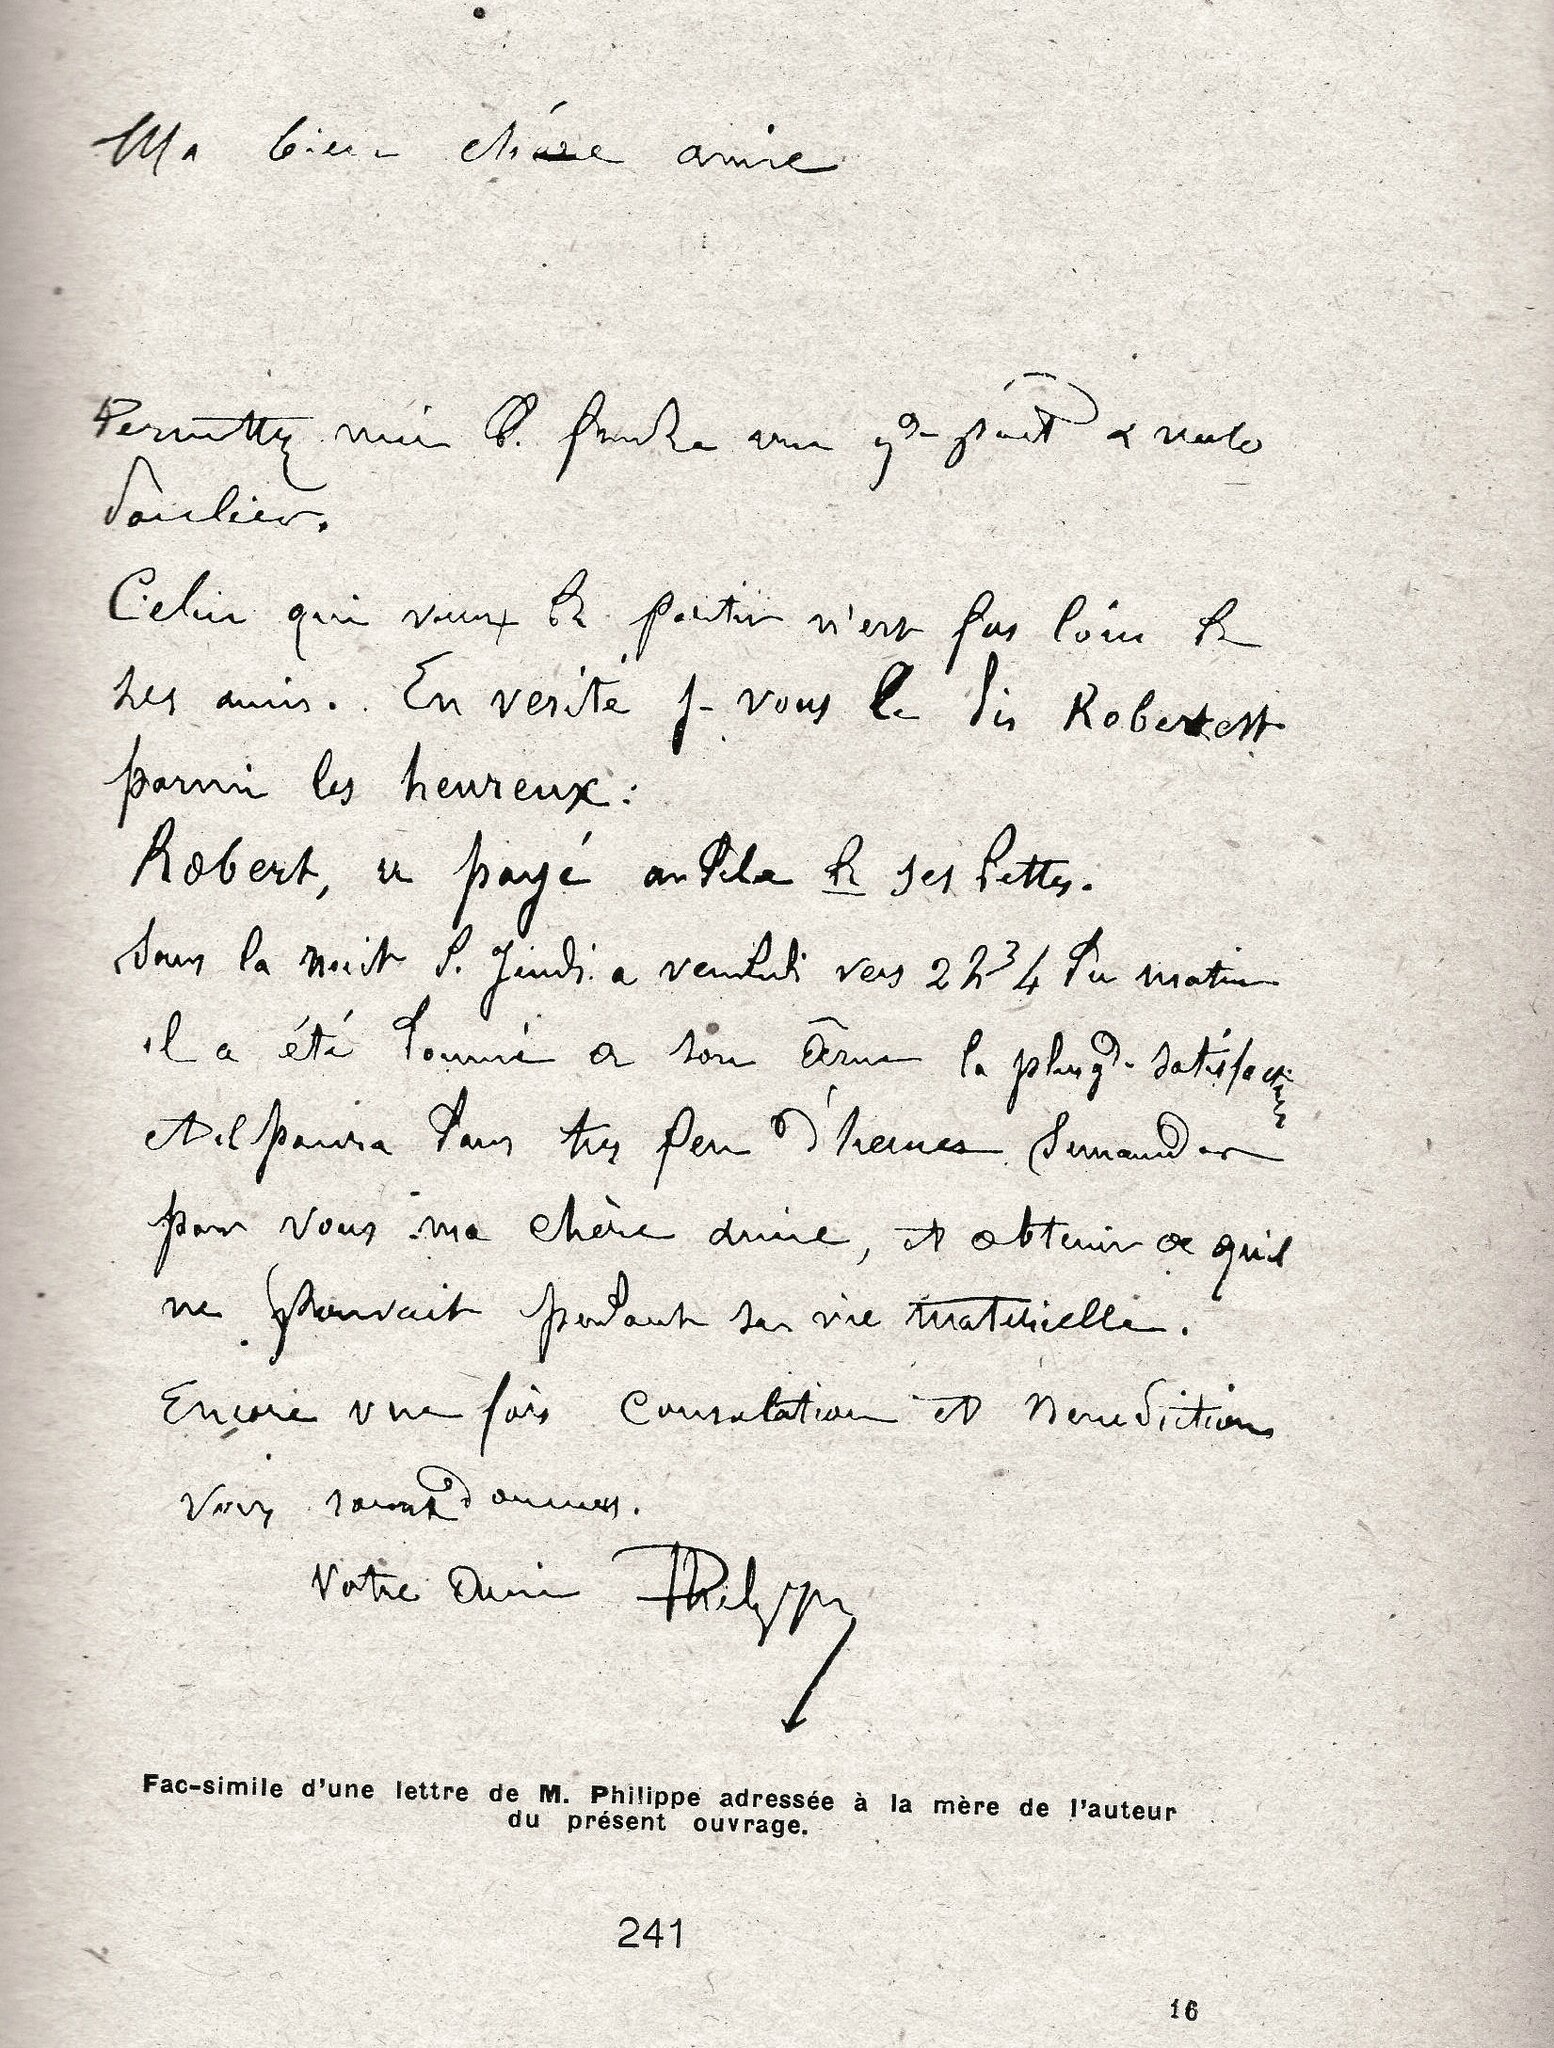 Ma bien chère amie
Permettez moi de prendre une gde part à votre
douleur.
Celui qui vient de partir n'est pas loin de
ses amis. En vérité je vous le dis Robert est
parmi les heureux:
Robert, a payé au delà de ses dettes.
Dans la nuit de Jeudi a vendredi vers 2 h 3/4 du matin
il a été donné a son âme la plus gde satisfaction
et il pourra dans très peu d'heures demander
pour vous ma chère amie, et obtenir ce qu'il
ne pouvait pendant sa vie materielle.
Encore une fois consolation et Benediction
vous seront données.
Votre ami Philippe
Fac-simile d'une lettre de M. Philippe adressée à la mère de l'auteur
du présent ouvrage.
241
16